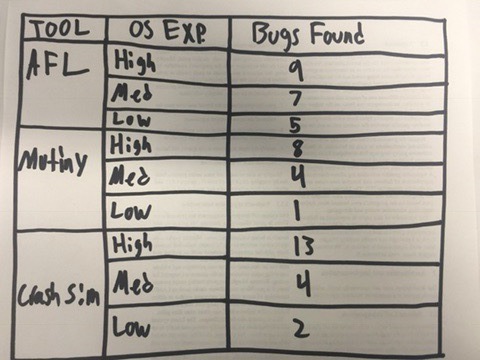 TOOL OS EXP Bugs Found
AFL High 9
Med 7
Low 5
Mutiny High 8
Med 4
Low 1
Clash Sim High 13
Med 4
Low 2